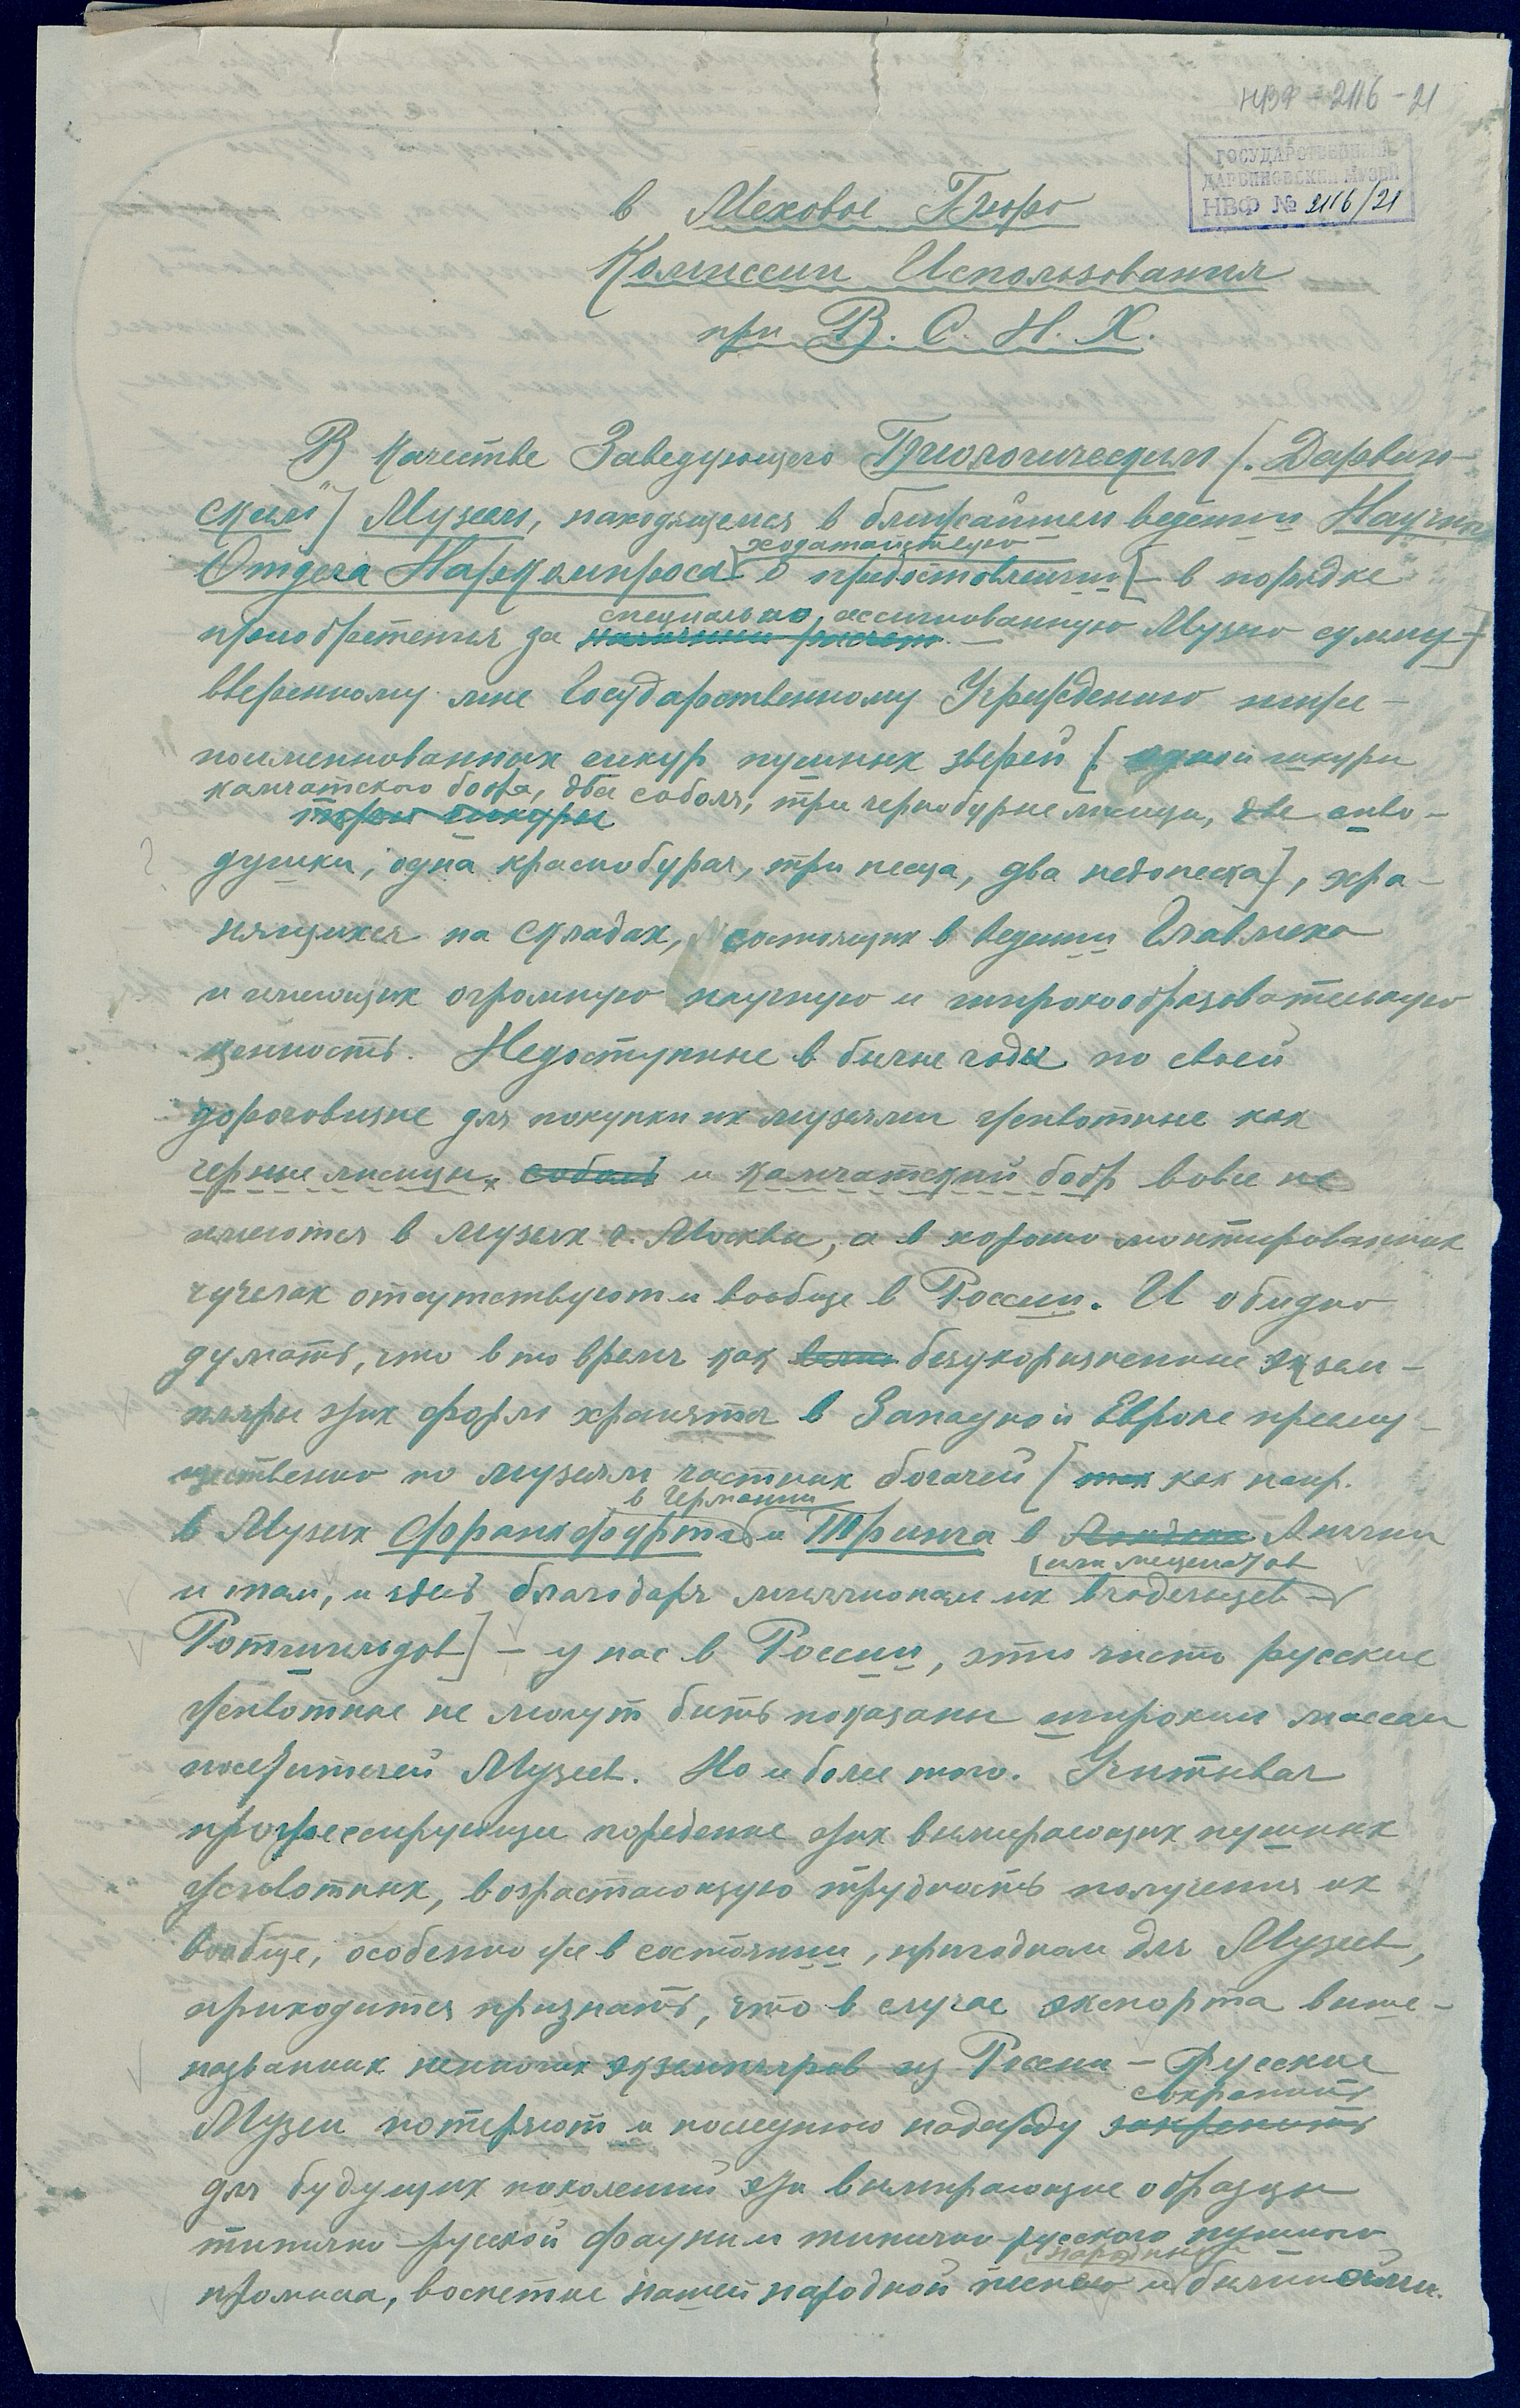 НВФ-2116-21
ГОСУДАРСТВЕННЫЙ
ДАРВИНОВСКИЙ МУЗЕЙ
НВФ № 2116/21
в Меховое Бюро
Комиссии Использования
при В. С. Н. Х.
В качестве Заведующего Биологическим [„Дарвинов-
ским"] Музеем, находящемся в ближайшем ведении Научн.
ходатайствую
Отдела Наркомпроса о предоставлении [- в порядке
специально, ассигнованную Музею сумму-]
приобретения за наличный расчет -
вверенному мне Государственному Учреждению ниже-
поименнованных шкур пушных зверей [одной шкуры
камчатского бобра, два соболя, три чернобурые лисицы, две сиво-
трех шкуры
душки, одна краснобурая, три песца, два недопеска], хра-
нящихся на складах, состоящих в ведении Главмеха
и имеющих огромную научную и широкообразовательную
ценность. Недоступные в былые годы по своей
дороговизне для покупки их музеями животные как
черные лисицы, соболь и камчатский бобр вовсе не
имеются в музеях г. Москвы, а в хорошо монтированных
чучелах отсутствуют и вообще в России. И обидно
думать, что в то время как безукоризненные экзем-
пляры этих форм хранятся в Западной Европе преиму-
щественно по музеям частных богачей [так как напр.
в Германии
в Музеях Франкфурта и Тринга в Лондоне Англии
[или меценатов
и там, и здесь благодаря миллионам их владельцев -
Ротшильдов] - у нас в России, эти чисто русские
животные не могут быть показаны широким массам
посетителей Музеев. Но и более того. Учитывая
прогрессирующее поредение этих вымирающих пушных
животных, возрастающую трудность получения их
вообще, особенно же в состоянии, пригодном для Музеев,
приходится признать, что в случае экспорта выше-
названных немногих экземпляров из России - Русские
сохранить
Музеи потеряют и последнюю надежду закрепить
для будущих поколений эти вымирающие образцы
типично-русской фауны и типично-русского пушного
народными
промысла, воспетые нашей народной песнею и былинами.